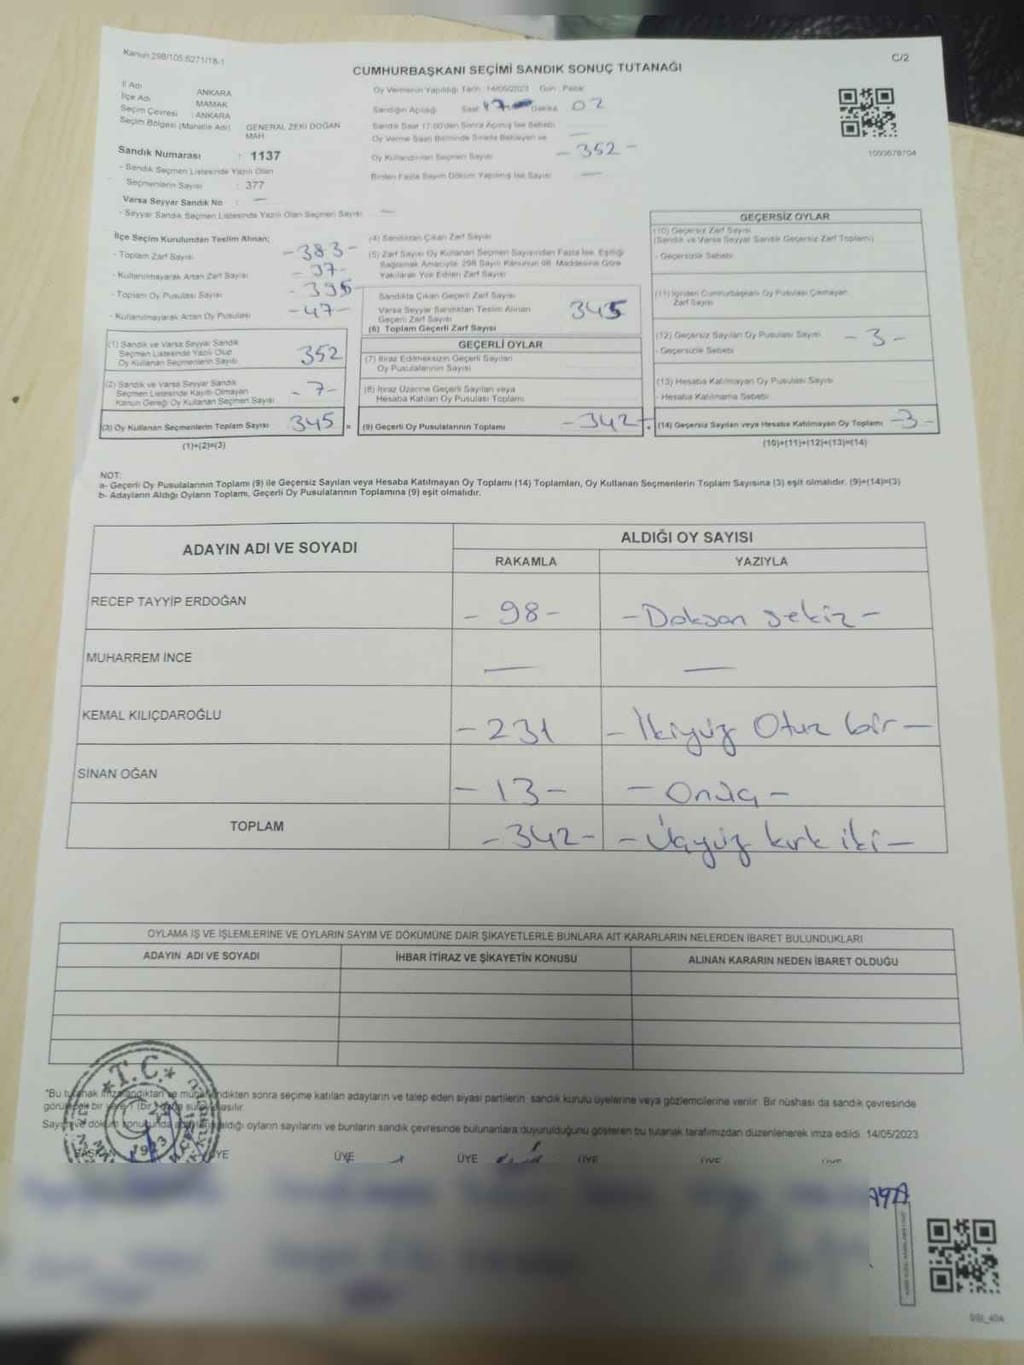 Kanun 298/105 6271/18-1
C/2
CUMHURBAŞKANI SEÇİMİ SANDIK SONUÇ TUTANAĞI
İl Adı : ANKARA
İlçe Adı : MAMAK
Seçim Çevresi : ANKARA
Seçim Bölgesi (Mahalle Adı) : GENERAL ZEKİ DOĞAN MAH
Sandık Numarası : 1137
- Sandık Seçmen Listesinde Yazılı Olan
Seçmenlerin Sayısı : 377
Varsa Seyyar Sandık No : —
- Seyyar Sandık Seçmen Listesinde Yazılı Olan Seçmen Sayısı : —
Oy Vermenin Yapıldığı Tarih : 14/05/2023 Gün : Pazar
Sandığın Açılışı Saat 17 Dakika 02
Oy Kullandırılan Seçmen Sayısı - 352 -
Birden Fazla Sayım Döküm Yapılmış İse Sayısı —
1000678704
İlçe Seçim Kurulundan Teslim Alınan;
- Toplam Zarf Sayısı - 383 -
- Kullanılmayarak Artan Zarf Sayısı - 37 -
- Toplam Oy Pusulası Sayısı
- Kullanılmayarak Artan Oy Pusulası - 47 -
(1) Sandık ve Varsa Seyyar Sandık
Seçmen Listesinde Yazılı Olup
Oy Kullanan Seçmenlerin Sayısı 352
(2) Sandık ve Varsa Seyyar Sandık
Seçmen Listesinde Kayıtlı Olmayan
Kanun Gereği Oy Kullanan Seçmen Sayısı - 7 -
(3) Oy Kullanan Seçmenlerin Toplam Sayısı 345 =
(1)+(2)=(3)
(4) Sandıktan Çıkan Zarf Sayısı
(5) Zarf Sayısı Oy Kullanan Seçmen Sayısından Fazla İse, Eşitliği
Sağlamak Amacıyla 298 Sayılı Kanunun 98. Maddesine Göre
Yakılarak Yok Edilen Zarf Sayısı
Sandıkta Çıkan Geçerli Zarf Sayısı
Varsa Seyyar Sandıktan Teslim Alınan
Geçerli Zarf Sayısı 345
(6) Toplam Geçerli Zarf Sayısı
GEÇERLİ OYLAR
(7) İtiraz Edilmeksizin Geçerli Sayılan
Oy Pusulalarının Sayısı
(8) İtiraz Üzerine Geçerli Sayılan veya
Hesaba Katılan Oy Pusulası Toplamı
(9) Geçerli Oy Pusulalarının Toplamı - 342 - +
GEÇERSİZ OYLAR
(10) Geçersiz Zarf Sayısı
(Sandık ve Varsa Seyyar Sandık Geçersiz Zarf Toplamı)
- Geçersizlik Sebebi
(11) İçinden Cumhurbaşkanı Oy Pusulası Çıkmayan
Zarf Sayısı
(12) Geçersiz Sayılan Oy Pusulası Sayısı - 3 -
- Geçersizlik Sebebi
(13) Hesaba Katılmayan Oy Pusulası Sayısı
- Hesaba Katılmama Sebebi
(14) Geçersiz Sayılan veya Hesaba Katılmayan Oy Toplamı - 3 -
(10)+(11)+(12)+(13)=(14)
NOT:
a- Geçerli Oy Pusulalarının Toplamı (9) ile Geçersiz Sayılan veya Hesaba Katılmayan Oy Toplamı (14) Toplamları, Oy Kullanan Seçmenlerin Toplam Sayısına (3) eşit olmalıdır. (9)+(14)=(3)
b- Adayların Aldığı Oyların Toplamı, Geçerli Oy Pusulalarının Toplamına (9) eşit olmalıdır.
ADAYIN ADI VE SOYADI
ALDIĞI OY SAYISI
RAKAMLA YAZIYLA
RECEP TAYYİP ERDOĞAN - 98 - - Doksan sekiz -
MUHARREM İNCE — —
KEMAL KILIÇDAROĞLU - 231 - İkiyüz Otuz bir -
SİNAN OĞAN - 13 - - Onüç -
TOPLAM - 342 - - Üçyüz kırk iki -
OYLAMA İŞ VE İŞLEMLERİNE VE OYLARIN SAYIM VE DÖKÜMÜNE DAİR ŞİKAYETLERLE BUNLARA AİT KARARLARIN NELERDEN İBARET BULUNDUKLARI
ADAYIN ADI VE SOYADI İHBAR İTİRAZ VE ŞİKAYETİN KONUSU ALINAN KARARIN NEDEN İBARET OLDUĞU
"Bu tutanak imzalandıktan ve mühürlendikten sonra seçime katılan adayların ve talep eden siyasi partilerin sandık kurulu üyelerine veya gözlemcilerine verilir. Bir nüshası da sandık çevresinde
görülecek bir yere 1 (bir) hafta süreyle asılır.
Sayım ve döküm sonucunda adayların aldığı oyların sayılarını ve bunların sandık çevresinde bulunanlara duyurulduğunu gösteren bu tutanak tarafımızdan düzenlenerek imza edildi. 14/05/2023
BAŞKAN ÜYE ÜYE ÜYE ÜYE ÜYE ÜYE
T.C.
1923